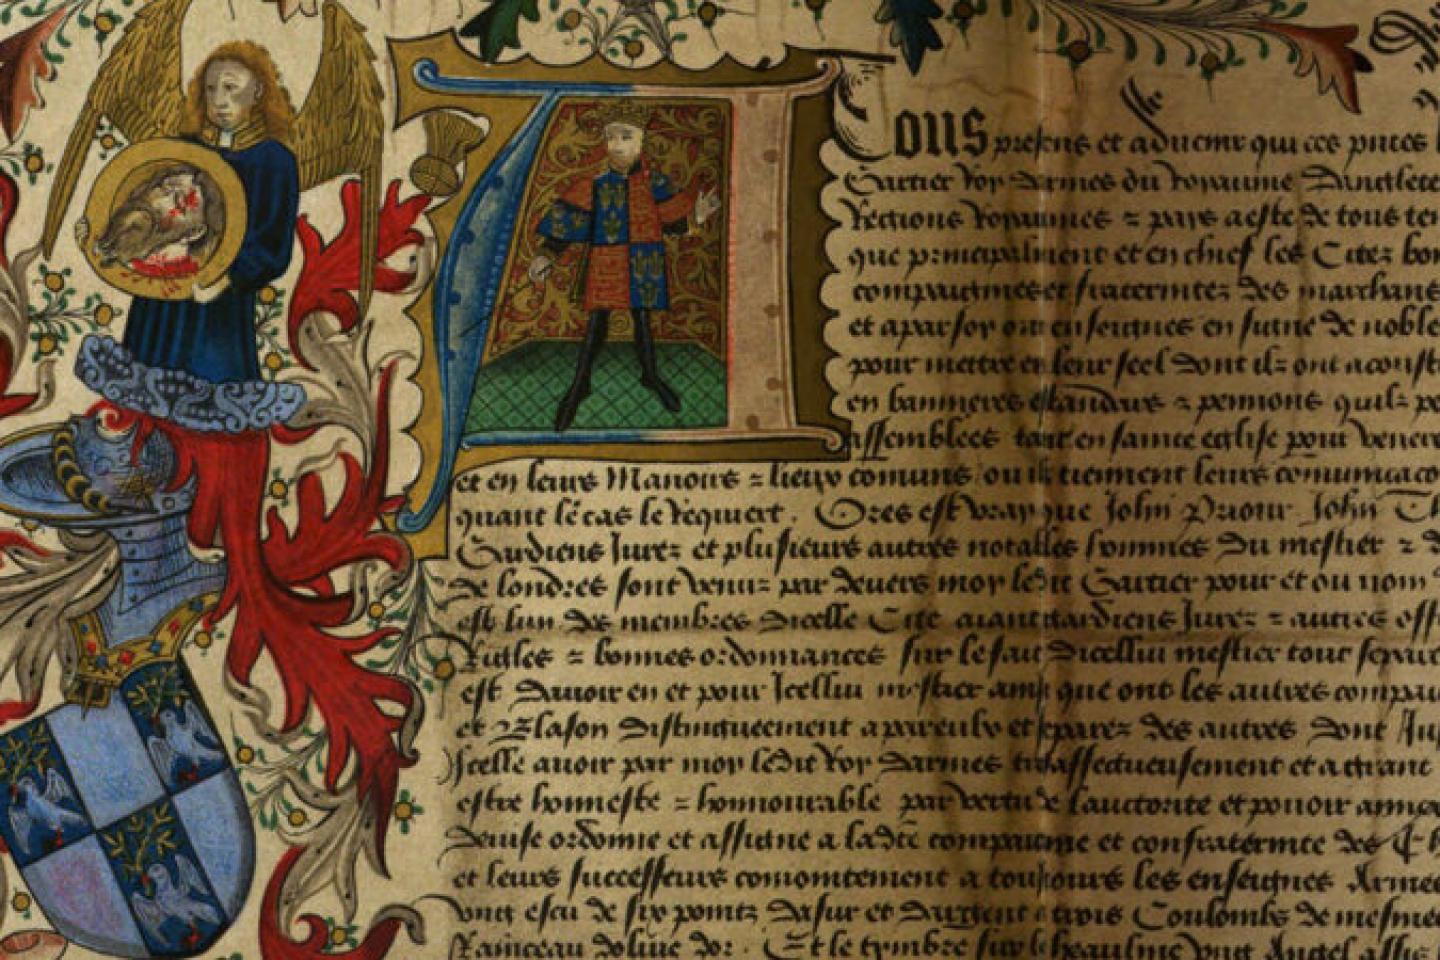 A Tous presens et advenir qui ces pntes
Gartier Roy darmes du Royaume Dangleter
Regions Royaumes = pays a este de tous te
que principalment et en chief les Citez bo
compaignies et fraternitez des marchans
et apar soy ont enseignes en signe de noble
pour mettre en leur seel dont ilz ont acoust
en bannieres estandars = pennons quilz po
assemblees tant en saincte eglise pour vene
et en leurs Manoirs = lieux comuns ou ilz tiennent leurs comunicaco
quant le cas le requiert . Ores est vray que John Priour John Th
Gardiens Jurez et plusieurs autres notables hommes du mestier =
de londres sont venuz par devers moy ledit Gartier pour et ou nom
est lun des membres dicelle Cite aiant gardiens Jurez = autres off
Riules = bonnes ordonnances sur le fait dicellui mestier tout sepa
est Davoir en et pour Icellui mestier ainsi que ont les autres compai
et Blason distinguement apareulx et separez des autres dont
Icelle avoir par moy ledit Roy darmes tresaffectueusement et a grant
estre honneste = honnourable par vertu de lauctorite et pouoir annex
devise ordonne et assigne a ladte compaignie et confraternite des
et leurs successeurs conioinctement a tousjours les enseignes Armes
ung escu de six pointz Dasur et Dargent a trois Coulombs de mesme
Rainceau dolive dor . Et le tymbre sur le heaulme ung Angel assis